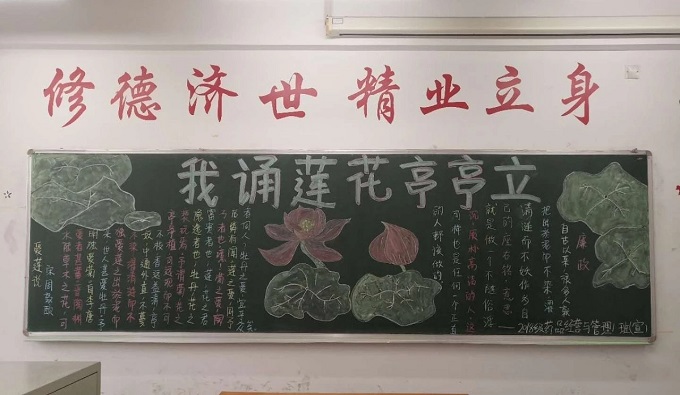 修德济世 精业立身
我诵莲花亭亭立
爱莲说
宋 周敦颐
水陆草木之花，可
爱者甚蕃 晋陶渊
明独爱菊 自李唐
来 世人甚爱牡丹 予
独爱莲之出淤泥而
不染 濯清涟而不
妖 中通外直 不蔓
不枝 香远益清 亭
隐逸者也 牡丹 花之
富贵者也 莲 花之君
子者也 噫 菊之爱 陶
后鲜有闻 莲之爱 同予
者何人？牡丹之爱 宜乎众矣
廉政
自古以来，很多人就
把出淤泥而不染濯
清涟而不妖作为自
己的座右铭，意思
就是做一个不随俗浮
质朴高洁的人，这
可能也是任何一个正直
的人所该做的
21级药品经营与管理1班(宣)